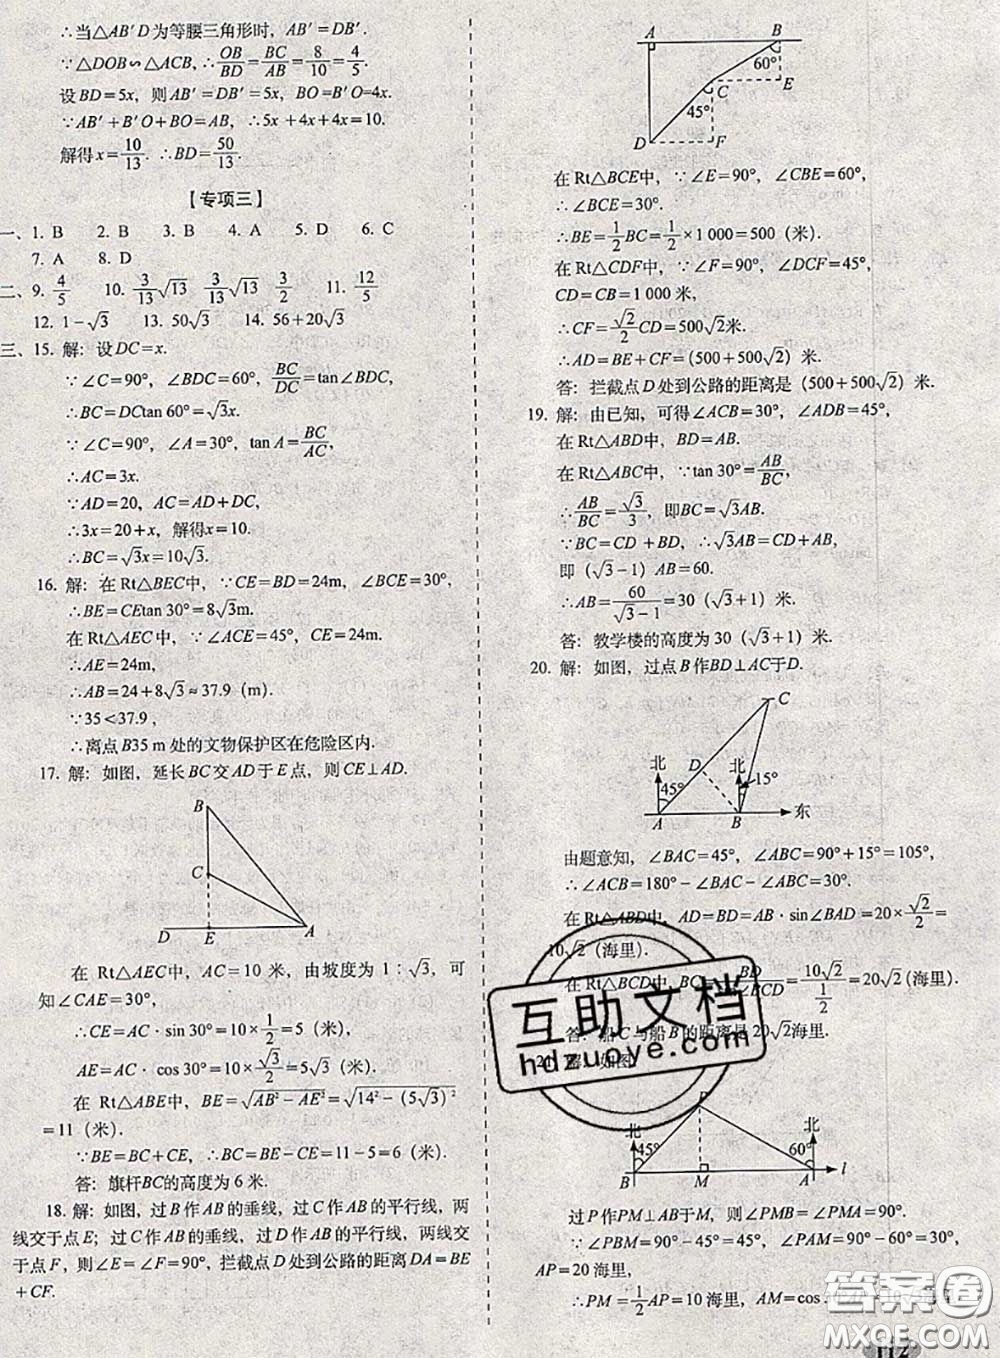 ∴当△AB′D为等腰三角形时，AB′=DB′.
∵△DOB∽△ACB, ∴OB/BD=BC/AB=8/10=4/5.
设BD=5x，则AB′=DB′=5x，BO=B′O=4x.
∵AB′+B′O+BO=AB, ∴5x+4x+4x=10.
解得x=10/13. ∴BD=50/13.
【专项三】
一、1. B 2. B 3. B 4. A 5. D 6. C
7. A 8. D
二、9. 4/5 10. 3/13√13 3/13√13 3/2 11. 12/5
12. 1-√3 13. 50√3 14. 56+20√3
三、15. 解：设DC=x.
∵∠C=90°，∠BDC=60°，BC/DC=tan∠BDC,
∴BC=DCtan 60°=√3x.
∵∠C=90°，∠A=30°，tan A=BC/AC,
∴AC=3x.
∵AD=20，AC=AD+DC,
∴3x=20+x，解得x=10.
∴BC=√3x=10√3.
16. 解：在Rt△BEC中，∵CE=BD=24m，∠BCE=30°,
∴BE=CEtan 30°=8√3m.
在Rt△AEC中，∵∠ACE=45°，CE=24m.
∴AE=24m,
∴AB=24+8√3≈37.9（m）.
∵35<37.9,
∴离点B35 m处的文物保护区在危险区内.
17. 解：如图，延长BC交AD于E点，则CE⊥AD.
B
C
D E A
在Rt△AEC中，AC=10米，由坡度为1∶√3，可
知∠CAE=30°,
∴CE=AC·sin 30°=10×1/2=5（米），
AE=AC·cos 30°=10×√3/2=5√3（米）.
在Rt△ABE中，BE=√(AB²-AE²)=√(14²-(5√3)²)
=11（米）.
∵BE=BC+CE, ∴BC=BE-CE=11-5=6（米）.
答：旗杆BC的高度为6米.
18. 解：如图，过B作AB的垂线，过C作AB的平行线，两
线交于点E；过C作AB的垂线，过D作AB的平行线，两线交
于点F，则∠E=∠F=90°，拦截点D处到公路的距离DA=BE
+CF.
A B
60°
C E
45°
D F
在Rt△BCE中，∵∠E=90°，∠CBE=60°,
∴∠BCE=30°.
∴BE=1/2BC=1/2×1 000=500（米）.
在Rt△CDF中，∵∠F=90°，∠DCF=45°,
CD=CB=1 000米,
∴CF=√2/2CD=500√2米.
∴AD=BE+CF=(500+500√2)米.
答：拦截点D处到公路的距离是(500+500√2)米.
19. 解：由已知，可得∠ACB=30°，∠ADB=45°,
在Rt△ABD中，BD=AB.
在Rt△ABC中，∵tan 30°=AB/BC,
∴AB/BC=√3/3，即BC=√3AB.
∵BC=CD+BD, ∴√3AB=CD+AB.
即(√3-1)AB=60.
∴AB=60/(√3-1)=30(√3+1)米.
答：教学楼的高度为30(√3+1)米.
20. 解：如图，过点B作BD⊥AC于D.
C
北 D 北
45° 15°
A B 东
由题意知，∠BAC=45°，∠ABC=90°+15°=105°,
∴∠ACB=180°-∠BAC-∠ABC=30°.
在Rt△ABD中，AD=BD=AB·sin∠BAD=20×√2/2=
10√2（海里）.
在Rt△BCD中，BC=BD/sin∠BCD=10√2/(1/2)=20√2（海里）.
答：船C与船B的距离是20√2海里.
21. 解：如图
北 P 北
45° 60°
B M A l
过P作PM⊥AB于M，则∠PMB=∠PMA=90°.
∵∠PBM=90°-45°=45°，∠PAM=90°-60°=30°,
AP=20海里,
∴PM=1/2AP=10海里，AM=cos
互助文档
hdzuoye.com
答案圈
MXQE.COM
112